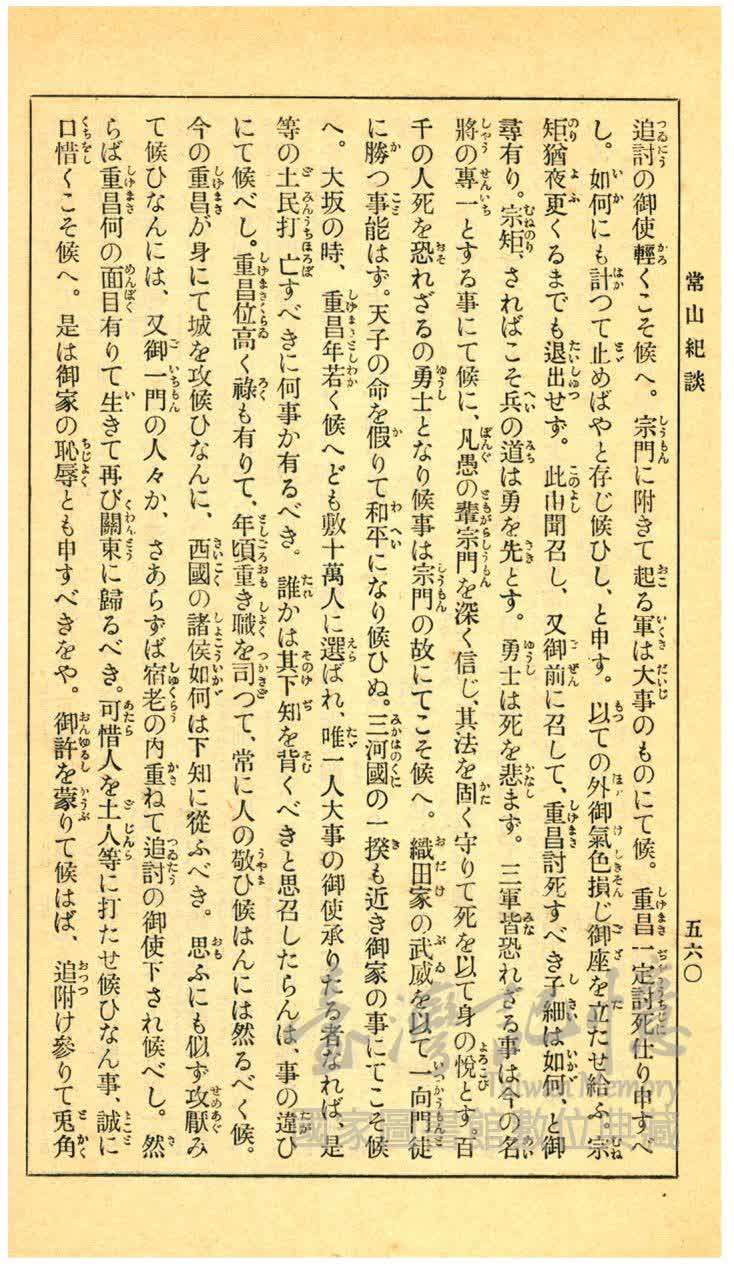 常山紀談
五六〇
追討の御使輕くこそ候へ。宗門に附きて起る軍は大事のものにて候。重昌一定討死仕り申すべ
し。如何にも計つて止めばやと存じ候ひし、と申す。以ての外御氣色損じ御座を立たせ給ふ。宗
矩猶夜更くるまでも退出せず。此由聞召し、又御前に召して、重昌討死すべき子細は如何、と御
尋有り。宗矩、さればこそ兵の道は勇を先とす。勇士は死を悲まず。三軍皆恐れざる事は今の名
將の專一とする事にて候に、凡愚の輩宗門を深く信じ、其法を固く守りて死を以て身の悅とす。百
千の人死を恐れざるの勇士となり候事は宗門の故にてこそ候へ。織田家の武威を以て一向門徒
に勝つ事能はず。天子の命を假りて和平になり候ひぬ。三河國の一揆も近き御家の事にてこそ候
へ。大坂の時、重昌年若く候へども數十萬人に選ばれ、唯一人大事の御使承りたる者なれば、是
等の土民打亡すべきに何事か有るべき。誰かは其下知を背くべきと思召したらんは、事の違ひ
にて候べし。重昌位高く祿も有りて、年頃重き職を司つて、常に人の敬ひ候はんには然るべく候。
今の重昌が身にて城を攻候ひなんに、西國の諸侯如何は下知に從ふべき。思ふにも似ず攻厭み
て候ひなんには、又御一門の人々か、さあらずば宿老の內重ねて追討の御使下され候べし。然
らば重昌何の面目有りて生きて再び關東に歸るべき。可惜人を土人等に打たせ候ひなん事、誠に
口惜くこそ候へ。是は御家の恥辱とも申すべきをや。御許を蒙りて候はば、追附け參りて兎角
臺灣記憶
Taiwan Memory
國家圖書館數位典藏